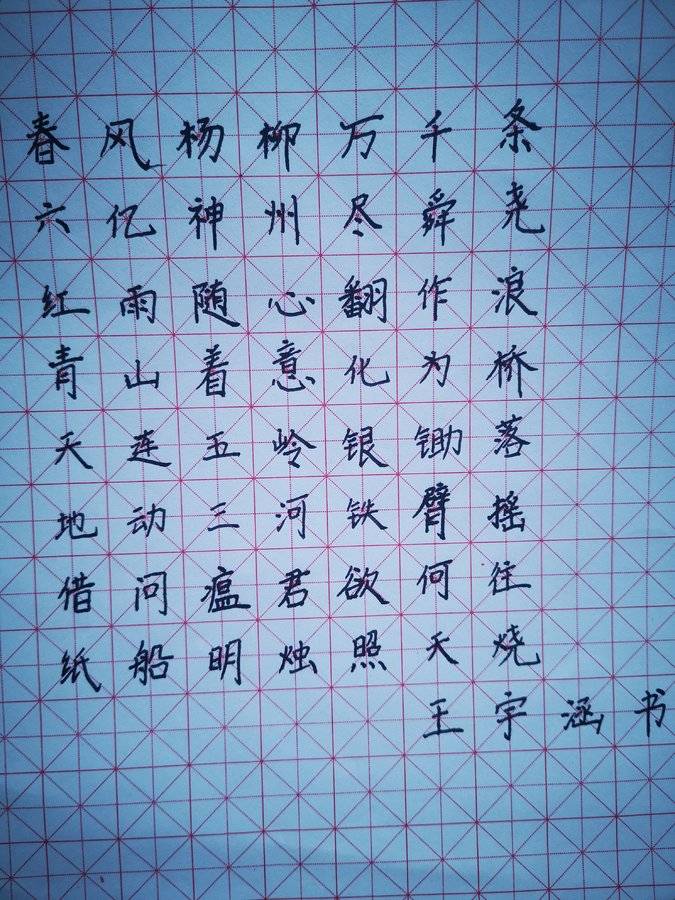 春风杨柳万千条
六亿神州尽舜尧
红雨随心翻作浪
青山着意化为桥
天连五岭银锄落
地动三河铁臂摇
借问瘟君欲何往
纸船明烛照天烧
王宇涵书